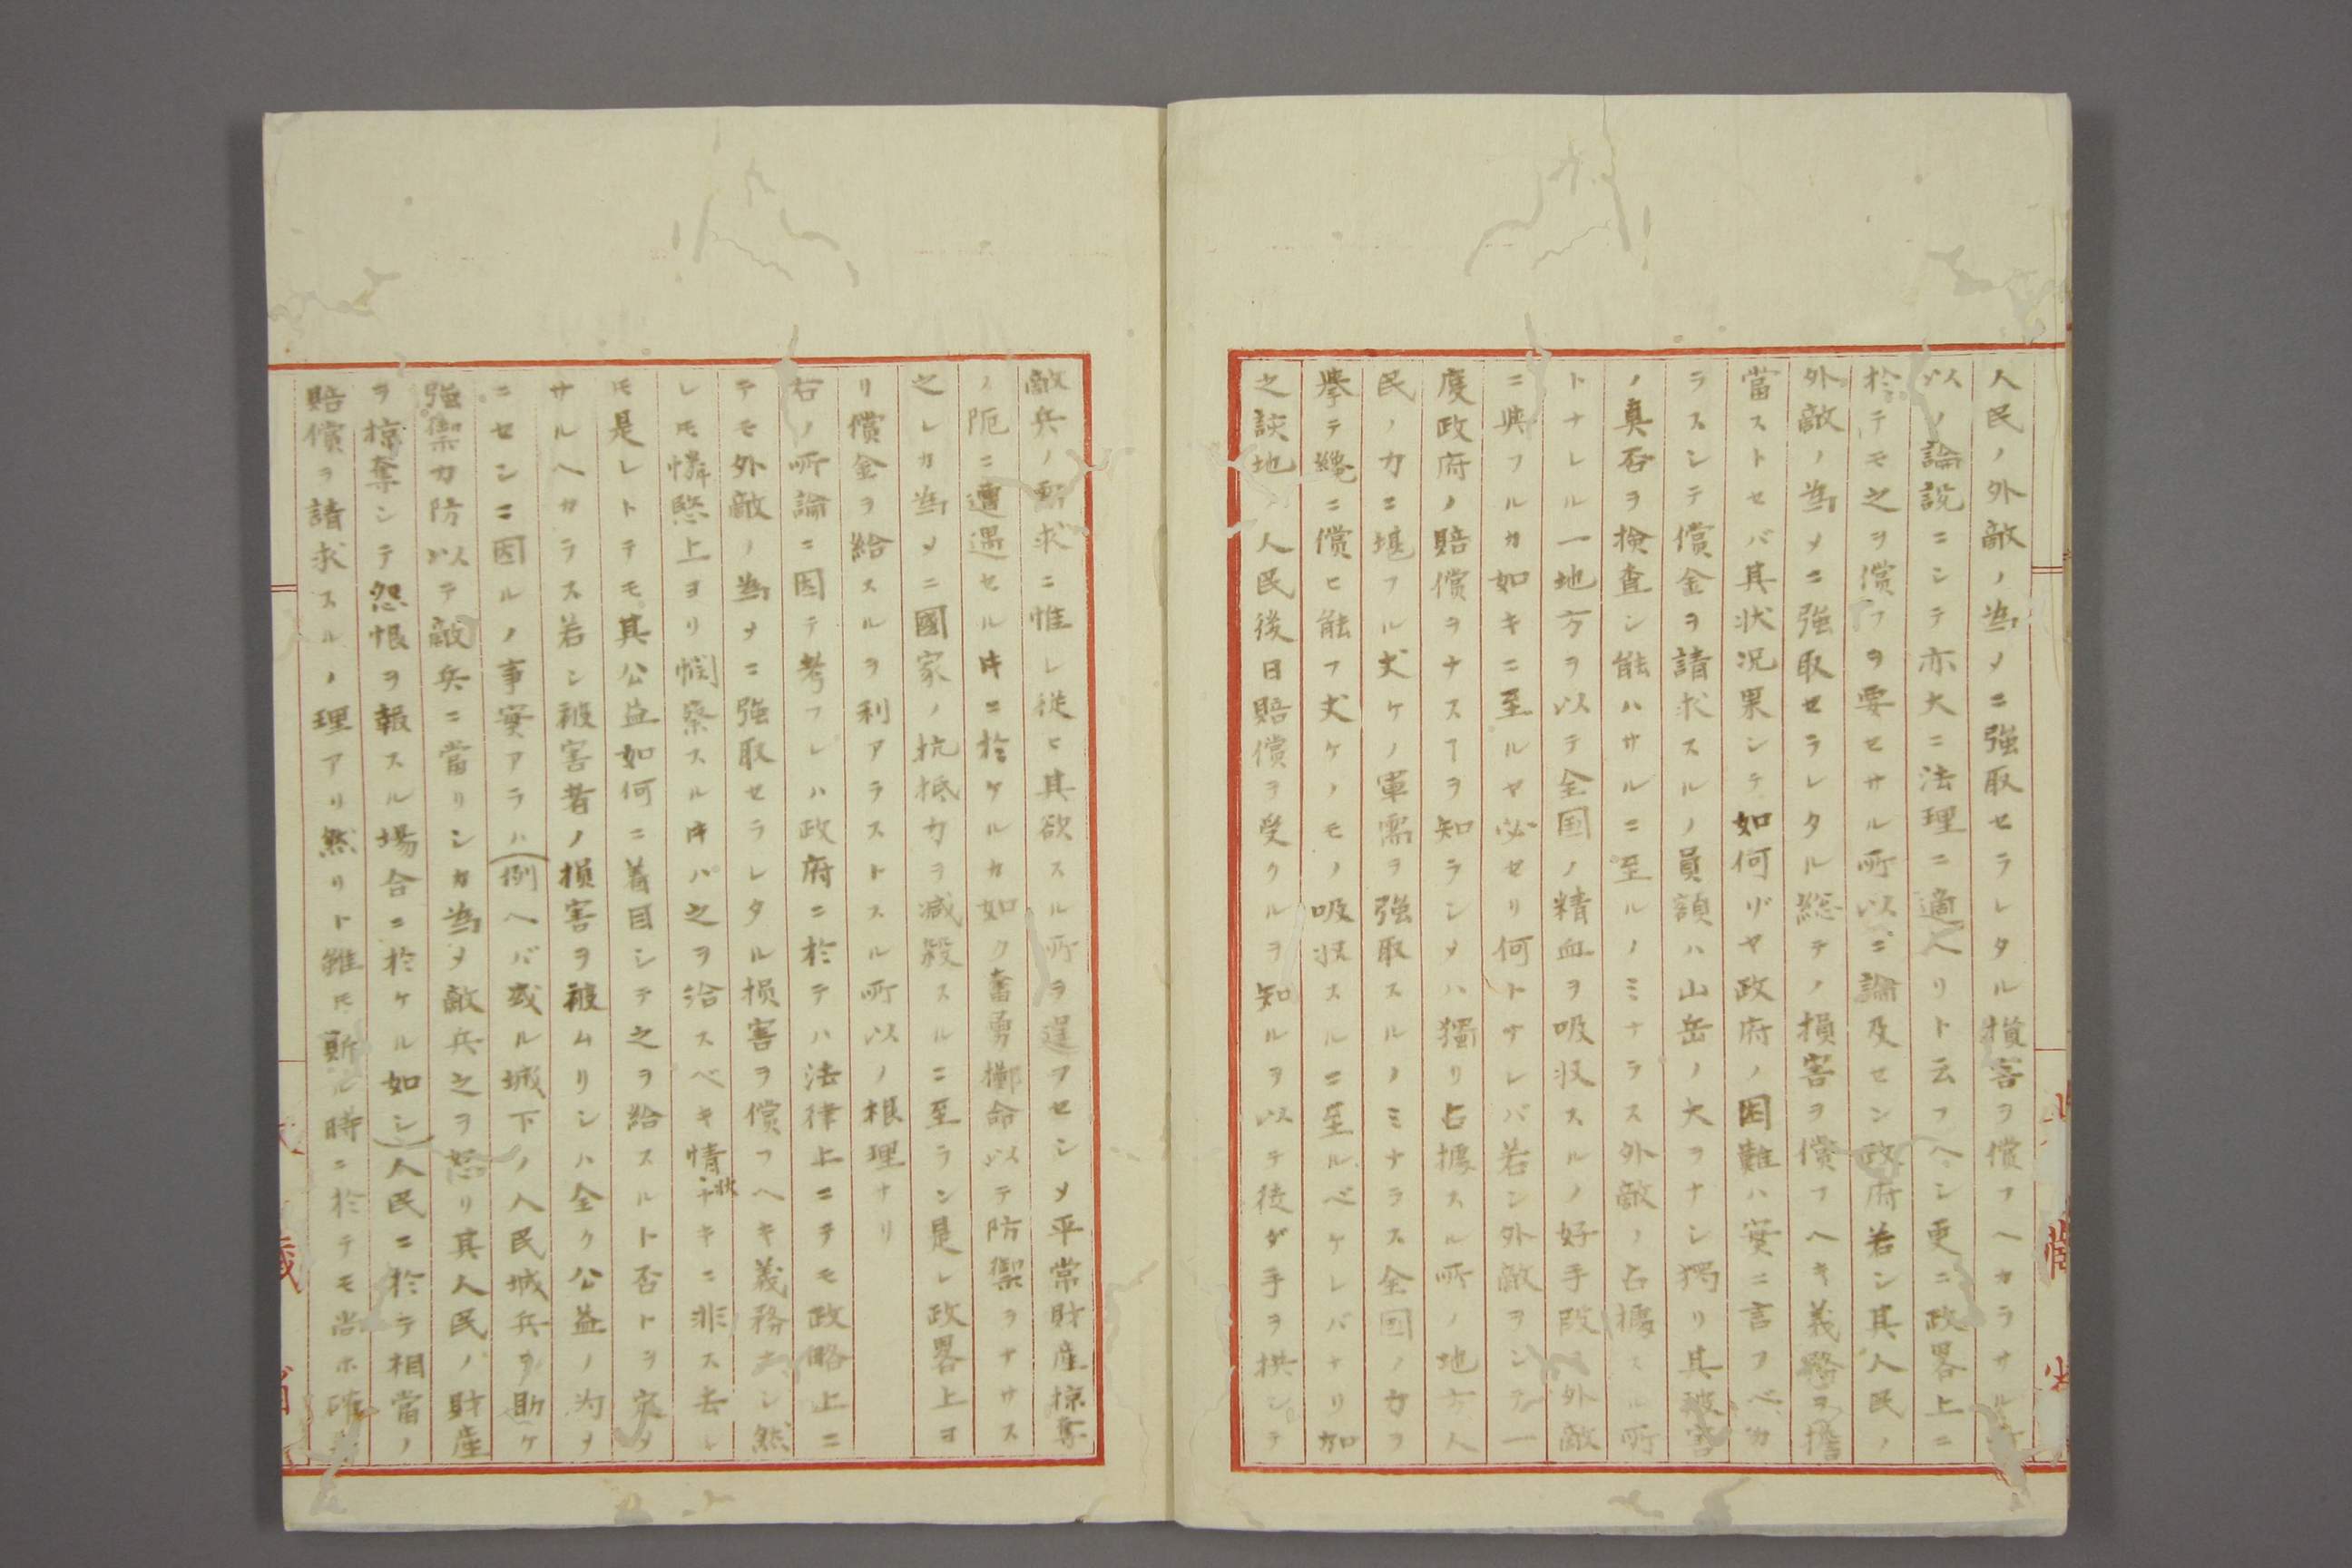 人民ノ外敵ノ為メニ強取セラレタル損害ヲ償フヘカラサル
以ノ論説ニシテ亦大ニ法理ニ適ヘリト云フヘシ更ニ政畧上ニ
於テモ之ヲ償フヲ要セサル所以ニ論及セン政府若シ其人民ノ
外敵ノ為メニ強取セラレタル総テノ損害ヲ償フヘキ義務ヲ擔
當ストセバ其状況果シテ如何ゾヤ政府ノ困難ハ実ニ言フベカ
ラスシテ償金ヲ請求スルノ員額ハ山岳ノ大ヲナシ獨リ其被害
ノ真否ヲ検査シ能ハサルニ至ルノミナラス外敵ノ占據スル所
トナレル一地方ヲ以テ全国ノ精血ヲ吸収スルノ好手段ヲ外敵
ニ與フルカ如キニ至ルヤ必セリ何トナレバ若シ外敵ヲシテ一
度政府ノ賠償ヲナスヿヲ知ラシメハ獨リ占據スル所ノ地方人
民ノ力ニ堪フル丈ケノ軍需ヲ強取スルノミナラス全国ノ力ヲ
挙テ纔ニ償ヒ能フ丈ケノモノ吸収スルニ至ルベケレバナリ加
之該地ノ人民後日賠償ヲ受クルヲ知ルヲ以テ徒ダ手ヲ拱シテ
敵兵ノ勒求ニ惟レ従ヒ其欲スル所ヲ逞フセシメ平常財産掠奪
ノ阨ニ遭遇セル時ニ於ケルカ如ク奮勇擲命以テ防禦ヲナサス
之レカ為メニ國家ノ抗抵力ヲ减殺スルニ至ラン是レ政畧上ヨ
リ償金ヲ給スルヲ利アラストスル所以ノ根理ナリ
右ノ所論ニ因テ考フレハ政府ニ於テハ法律上ニテモ政略上ニ
テモ外敵ノ為メニ強取セラレタル損害ヲ償フヘキ義務ナシ然
レ𪜈憐愍上ヨリ惻察スル𪜈バ之ヲ給スベキ情状ナキニ非ス去レ
𪜈是レトテモ其公益如何ニ着目シテ之ヲ給スルト否トヲ定メ
サルヘカラス若シ被害者ノ損害ヲ被ムリシハ全ク公益ノ为メ
ニセシニ因ルノ事実アラハ(例ヘバ或ル城下ノ人民城兵ヲ助ケ
強禦力防以テ敵兵ニ當リシカ為メ敵兵之ヲ怒リ其人民ノ財産
ヲ掠奪シテ怨恨ヲ報スル場合ニ於ケル如シ)人民ニ於テ相當ノ
賠償ヲ請求スルノ理アリ然リト雖𪜈斯ル時ニ於テモ尚ホ確